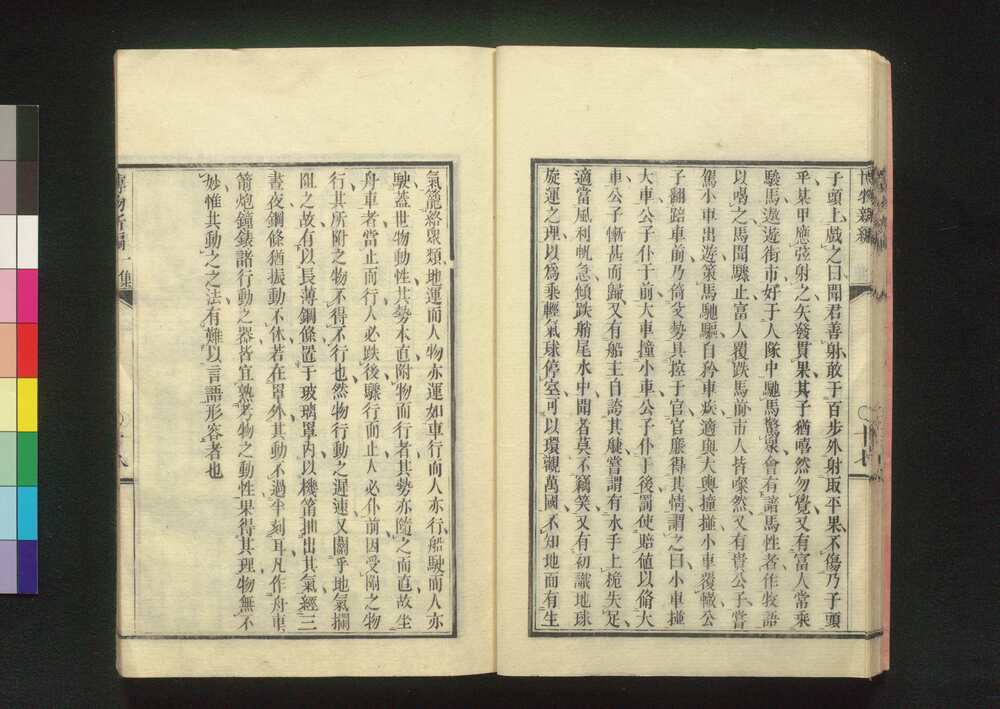 博物新編
十七
子頭上戲之曰聞君善射敢于百步外射取平果不傷乃子頭
乎某甲應弦射之矢發貫果其子猶嘻然勿覺又有富人常乘
駿馬遊遊街市好于人隊中馳馬驚衆會有諳馬性者作牧語
以喝之馬聞驟止富人覆跌馬前市人皆粲然又有貴公子嘗
駕小車出遊策馬馳驅自矜車疾適與大輿撞撞小車覆轍公
子翻踣車前乃簡爻勢具控于官官廉得其情謂之曰小車撞
大車公子仆于前大車撞小車公子仆于後罰使賠值以脩大
車公子慚甚而歸又有船主自誇其駛嘗謂有水手上桅失足
適當風利帆急傾跌艄尾水中聞者莫不竊笑又有初識地球
旋運之理以爲乘輕氣球停空可以環觀萬國不知地面有生
氣籠絡環類地運而人物亦運如車行而人亦行船駛而人亦
駛蓋世物動性其勢本直附物而行者其勢亦隨之而直故坐
舟車者當止而行人必跌後驟行而止人必仆前因受附之物
行其所附之物不得不行也然物行動之遲速又關乎地氣攔
阻之故有以長薄鋼條置于玻璃罩內以機筩抽出其氣經三
晝夜鋼條猶振動不休若在罩外其動不過半刻耳凡作舟車
箭炮鐘錶諸行動之器皆宜熟考物之動性果得其理物無不
妙惟共動之之法有難以言語形容者也